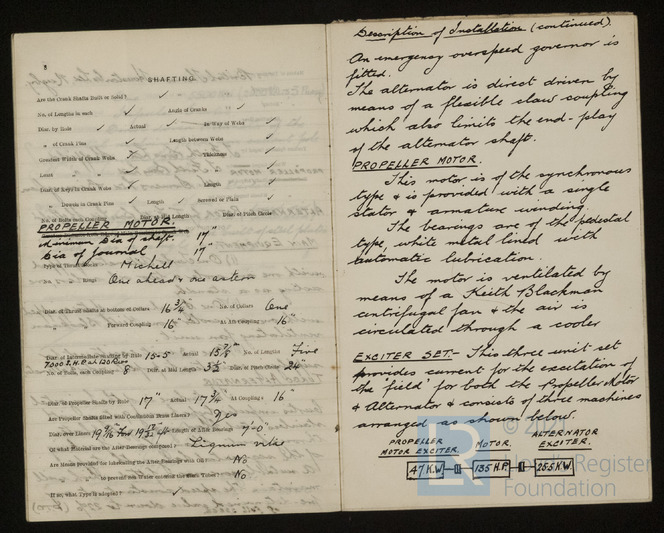 8
SHAFTING
Are the Crank Shafts Built or Solid? ✓
No. of Lengths in each ✓ Angle of Cranks ✓
Diar. by Rule ✓ Actual ✓ In Way of Webs ✓
" of Crank Pins ✓ Length between Webs ✓
Greatest Width of Crank Webs ✓ Thickness ✓
Least " ✓ " ✓
Diar. of Keys in Crank Webs ✓ Length ✓
" Dowels in Crank Pins ✓ Length ✓ Screwed or Plain ✓
No. of Bolts each Coupling Diar. at Mid Length Diar. of Pitch Circle
PROPELLER MOTOR.
Minimum dia of shaft. 17"
Dia of Journal 17"
Type of Thrust Blocks Michell
" Rings One ahead & one astern
Diar. of Thrust Shafts at bottom of Collars 16 3/4 No. of Collars One
" Forward Coupling 16" At Aft Coupling 16"
Diar. of Intermediate Shafting by Rule 15·5 Actual 15 7/8" No. of Lengths Five
7000 S.H.P at 120 Revs
No. of Bolts, each Coupling 8 Diar. at Mid Length 3 1/2 Diar. of Pitch Circle 24"
Diar. of Propeller Shafts by Rule 17" Actual 17 3/4 At Coupling 16
Are Propeller Shafts fitted with Continuous Brass Liners? Yes
Diar. over Liners 19 9/16 Ford 19 17/32 Aft Length of After Bearings 7'-0"
Of what Material are the After Bearings composed? Lignum vitae
Are Means provided for lubricating the After Bearings with Oil? No
" to prevent Sea-Water entering the Stern Tubes? No
If so, what Type is adopted? ✓
Description of Installation (continued).
An emergency overspeed governor is
fitted.
The alternator is direct driven by
means of a flexible claw coupling
which also limits the end-play
of the alternator shaft.
PROPELLER MOTOR.
This motor is of the synchronous
type & is provided with a single
stator & armature winding.
The bearings are of the pedestal
type, white metal lined with
automatic lubrication.
The motor is ventilated by
means of a Keith Blackman
centrifugal fan & the air is
circulated through a cooler
EXCITER SET:- This three unit set
provides current for the excitation of
the 'field' for both the Propeller Motor
& Alternator & consists of three machines
arranged as shown below.
PROPELLER MOTOR EXCITER. MOTOR. ALTERNATOR EXCITER.
47 K.W. 135 H.P. 25.5 K.W.
LR
© 2021
Lloyd's Register
Foundation